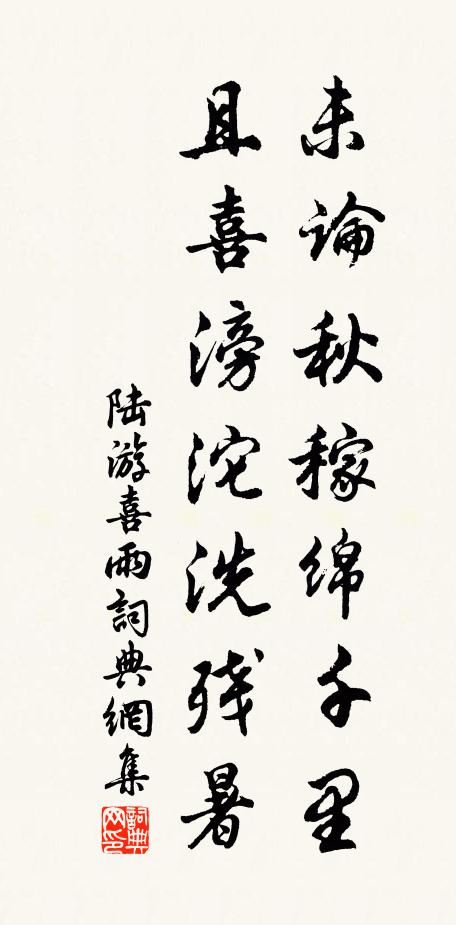 未論秋稼綿千里
且喜滂沱洗残暑
陆游喜雨詞典網集
詞典网印